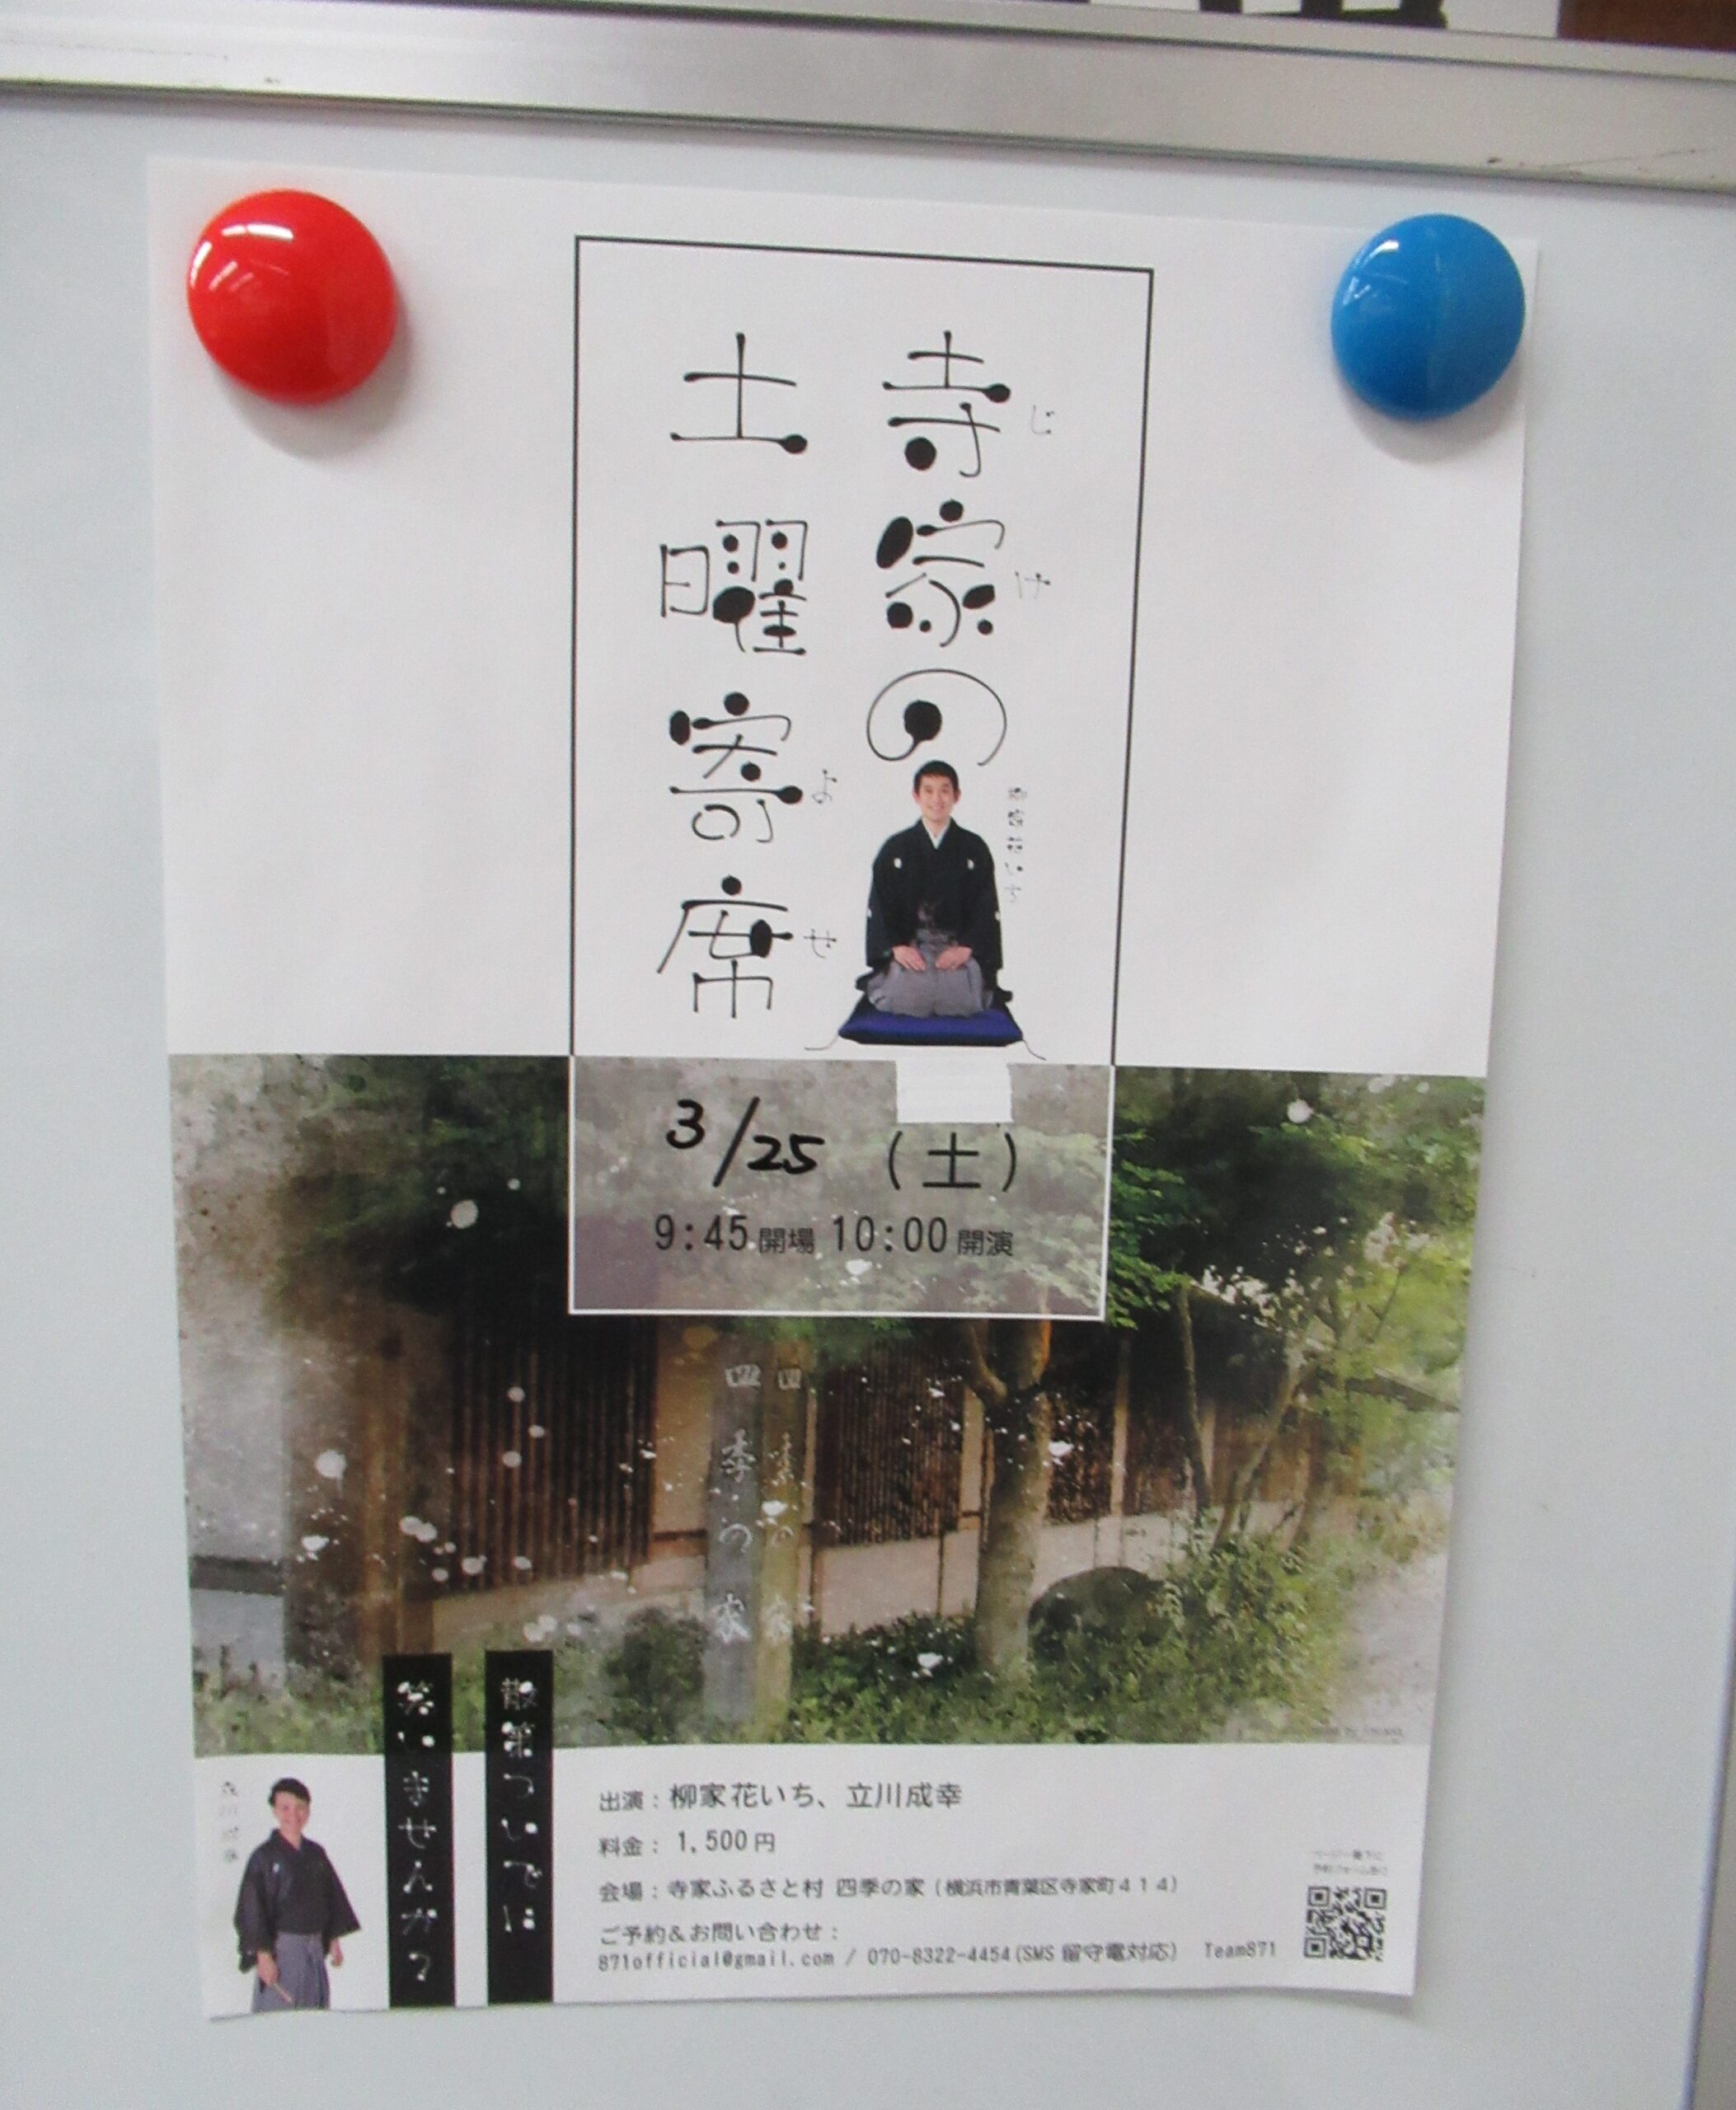 寺家の
じ
け
土曜寄席
よ
せ
柳家花いち
3/25 (土)
9:45開場 10:00開演
四季の家
四季の家
散策ついでに
笑いませんか?
立川成幸
出演:柳家花いち、立川成幸
料金: 1,500円
会場:寺家ふるさと村 四季の家(横浜市青葉区寺家町414)
ご予約&お問い合わせ:
871official@gmail.com / 070-8322-4454(SMS 留守電対応) Team871